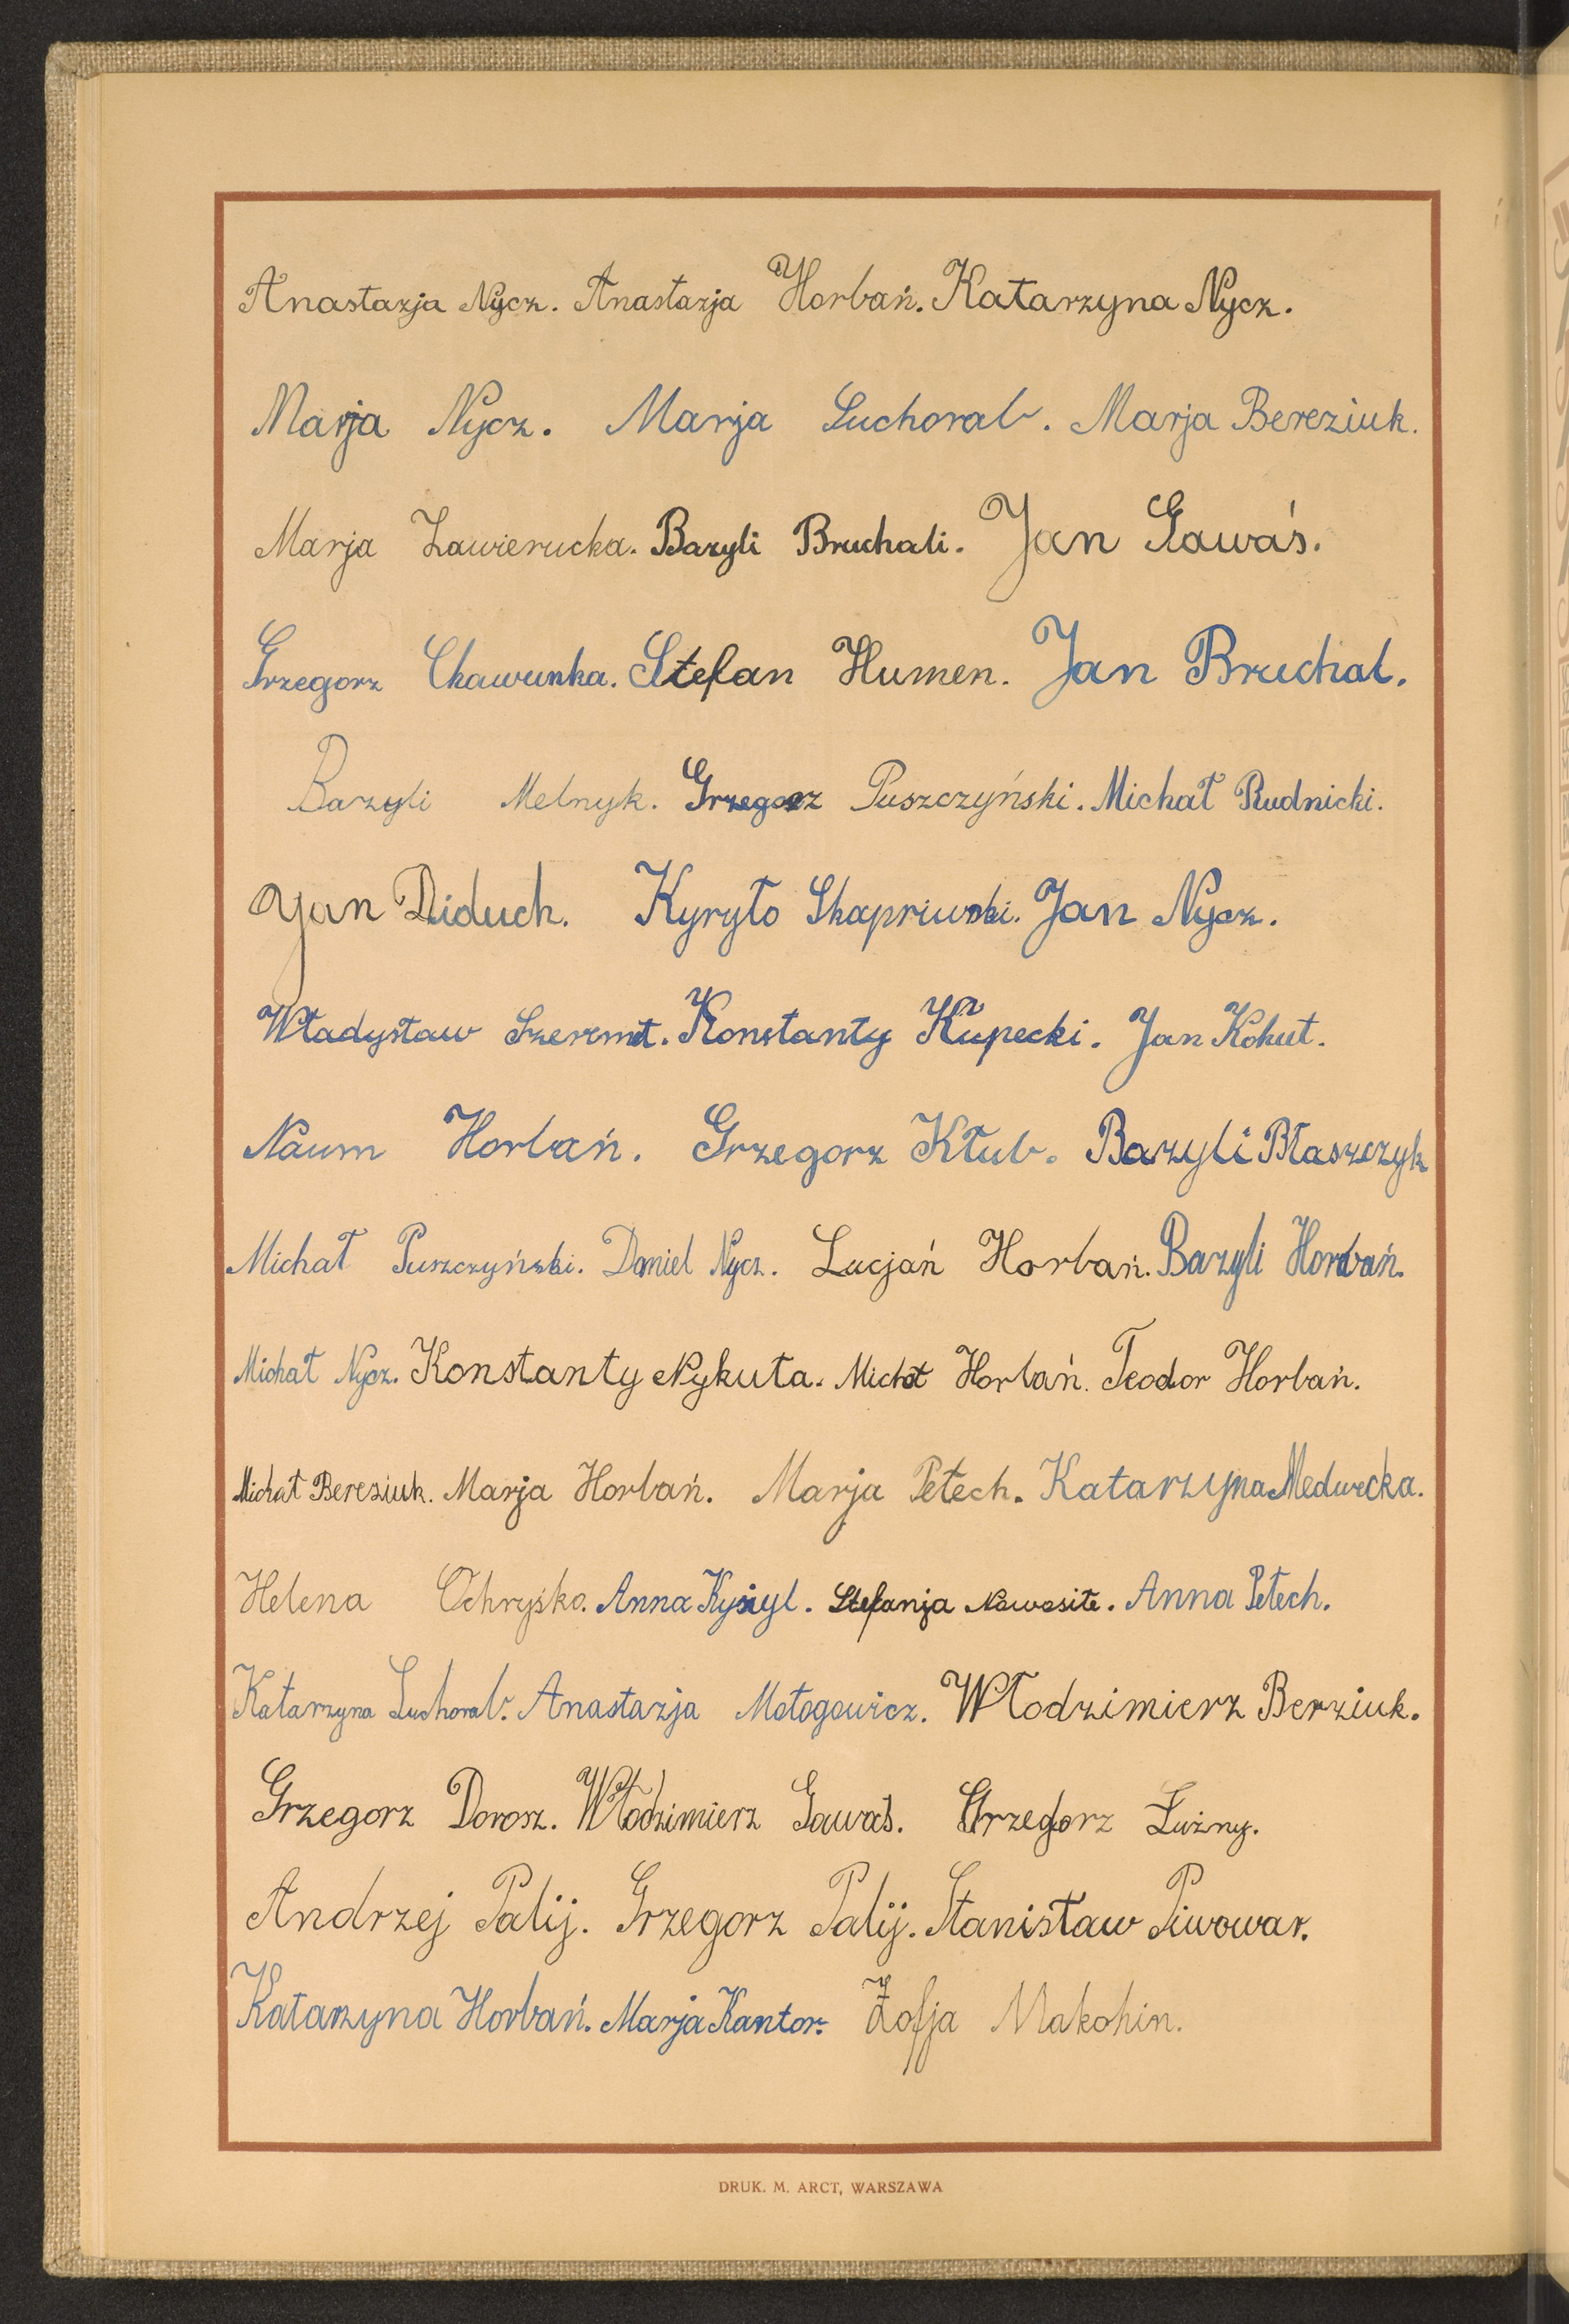 Anastazja Nycz. Anastazja Horbań. Katarzyna Nycz.
Marja Nycz. Marja Suchorab. Marja Bereziuk.
Marja Zawierucka. Bazyli Bruchali. Jan Gawaś.
Grzegorz Chawunka. Stefan Humen. Jan Bruchal.
Bazyli Melnyk. Grzegorz Puszczyński. Michał Rudnicki.
Jan Diduch. Kyryło Jan Nycz.
Władysław Konstanty Kupecki. Jan Kohut.
Naum Horbań. Grzegorz Kłub. Bazyli Błaszczyk
Michał Puszczyński. Daniel Nycz. Lucjań Horbań. Bazyli Horbań.
Michał Nycz. Konstanty Nykuta. Michał Horbań. Teodor Horbań.
Michał Bereziuk. Marja Horbań. Marja Petech. Katarzyna Medwecka.
Helena Ochryśko. Anna Kyzyl. Stefanja Anna Petech.
Katarzyna Suchorab. Anastazja Mołogowicz. Włodzimierz Berziuk.
Grzegorz Dorosz. Włodzimierz Gawaś. Grzegorz Łużny.
Andrzej Palij. Grzegorz Palij. Stanisław Piwowar.
Katarzyna Horbań. Marja Kantor. Zofja Makohin.
DRUK. M. ARCT, WARSZAWA